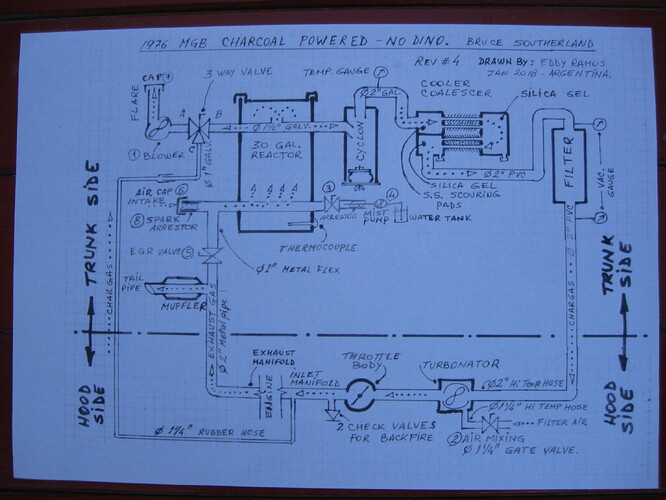 1976 MGB CHARCOAL POWERED - NO DINO. BRUCE SOUTHERLAND
REV #4 DRAWN BY: EDDY RAMOS
JAN 2018 - ARGENTINA.
CAP(7)
FLARE
3 WAY VALVE
A
B
① BLOWER
Ø 1" GALV.
Ø 1½" GALV.
30 GAL.
REACTOR
TEMP. GAUGE
Ø 2" GAL.
CYCLON
COOLER
COALESCER
SILICA GEL
SILICA GEL
S.S. SCOURING
PADS
Ø 2" PVC
FILTER
VAC.
GAUGE
Ø 2" PVC
AIR CAP ⑥
INTAKE
⑧ SPARK
ARRESTOR
③
ARRESTOR
④
MIST
PUMP
WATER TANK
THERMOCOUPLE
EGR VALVE ⑤
Ø 1" METAL FLEX
TAIL
PIPE
MUFFLER
EXHAUST GAS
Ø 2" Metal pipe
CHARGAS
CHARGAS
TRUNK SIDE
HOOD
SIDE
TRUNK
SIDE
HOOD
SIDE
EXHAUST
MANIFOLD
ENGINE
INLET
MANIFOLD
THROTTLE
BODY
TURBONATOR
Ø2" Hi Temp HOSE
Ø1¼" Hi TEMP HOSE
FILTER AIR
2 CHECK VALVES
FOR BACKFIRE
② AIR MIXING
Ø 1¼" GATE VALVE.
Ø 1¼" RUBBER HOSE